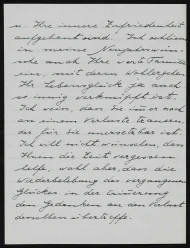 u. Ihre innere Zufriedenheit
aufgebaut sind. Ich schliesse
in meine Neujahrswün-
sche auch Ihre werte Familie
ein, mit deren Wohlergehen
Ihr Lebensglück ja auch
so innig verknüpft ist.
Ich weiss, dass Sie immer noch
an einem Verluste trauern,
der für Sie unersetzbar ist.
Ich will nicht wünschen, dass
Ihnen die Zeit vergessen
helfe, wohl aber, dass die
Wiederbelebung des vergangenen
Glückes in der Erinnerung
den Gedanken an den Verlust
desselben übertreffe.